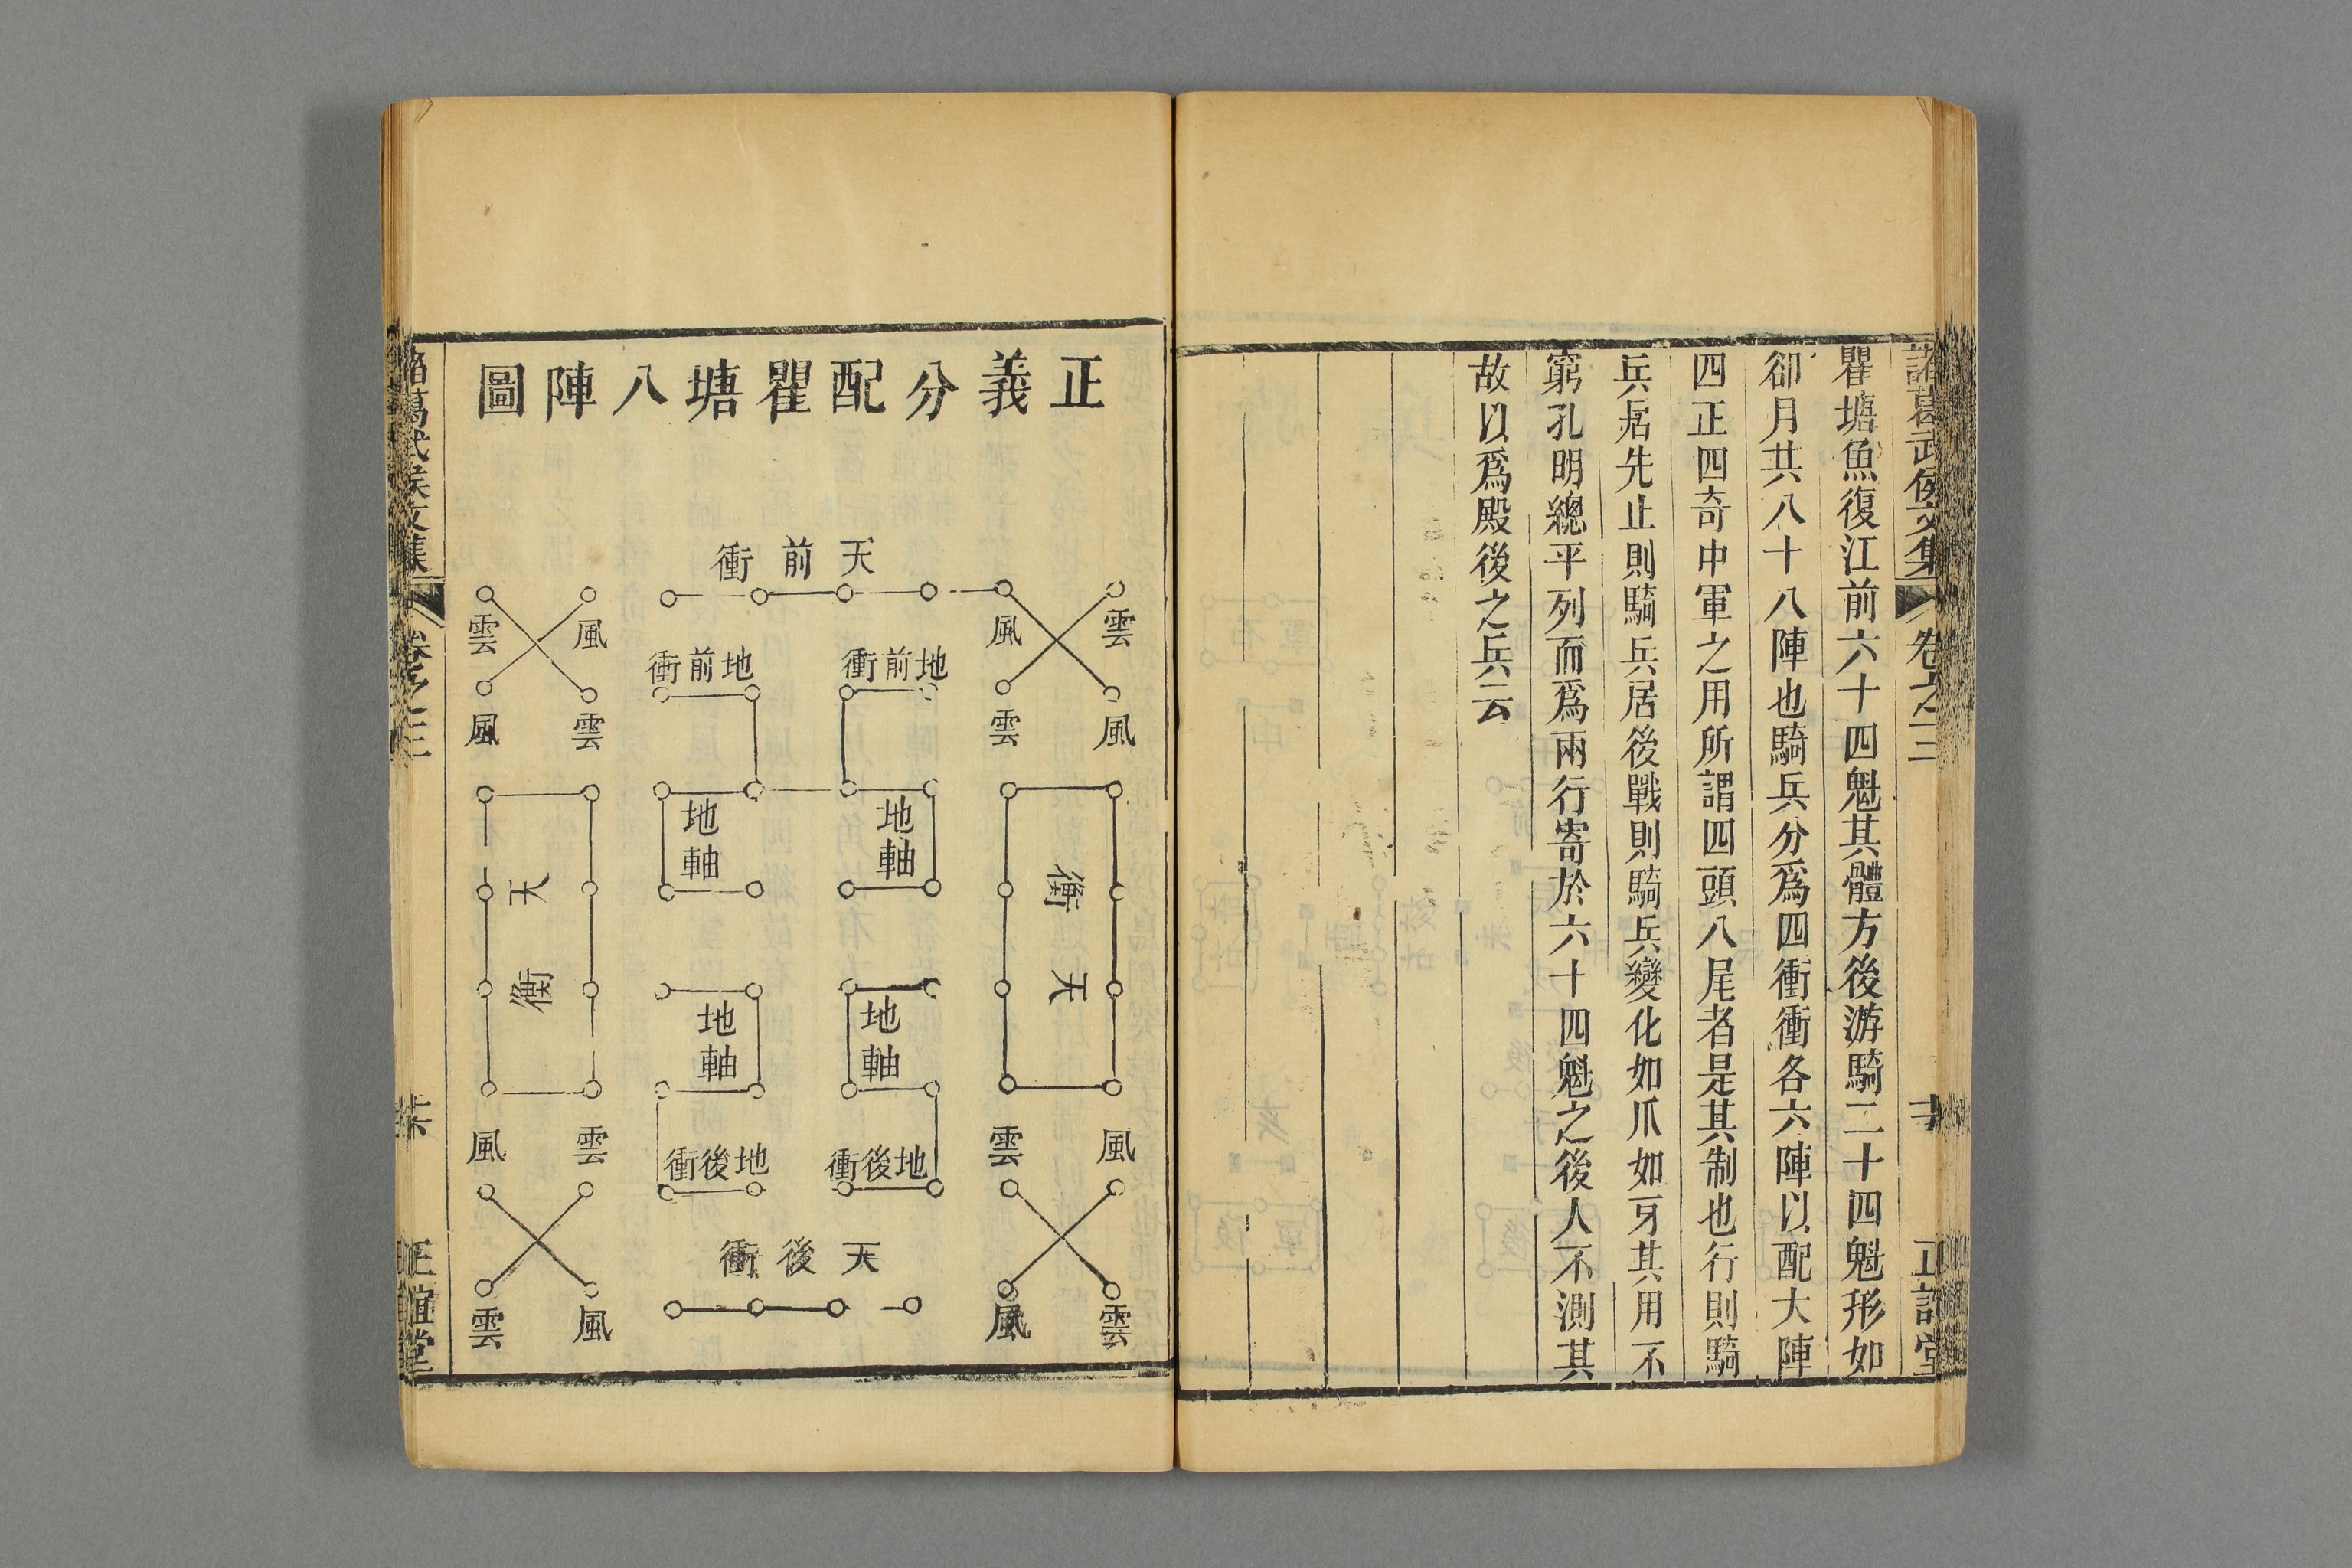 諸葛武侯文集
卷之三
正誼堂
瞿塘魚復江前六十四魁其體方後游騎二十四魁形如
卻月共八十八陣也騎兵分爲四衝衝各六陣以配大陣
四正四奇中軍之用所謂四頭八尾者是其制也行則騎
兵居先止則騎兵居後戰則騎兵變化如爪如牙其用不
窮孔明總平列而爲兩行寄於六十四魁之後人不測其
故以爲殿後之兵云
正義分配瞿塘八陣圖
天前衝
雲
風
風
雲
地前衝
地前衝
風
雲
雲
風
天衡
地軸
地軸
天衡
地軸
地軸
風
雲
雲
風
地後衝
地後衝
天後衝
雲
風
風
雲
諸葛武侯文集
卷之三
正誼堂